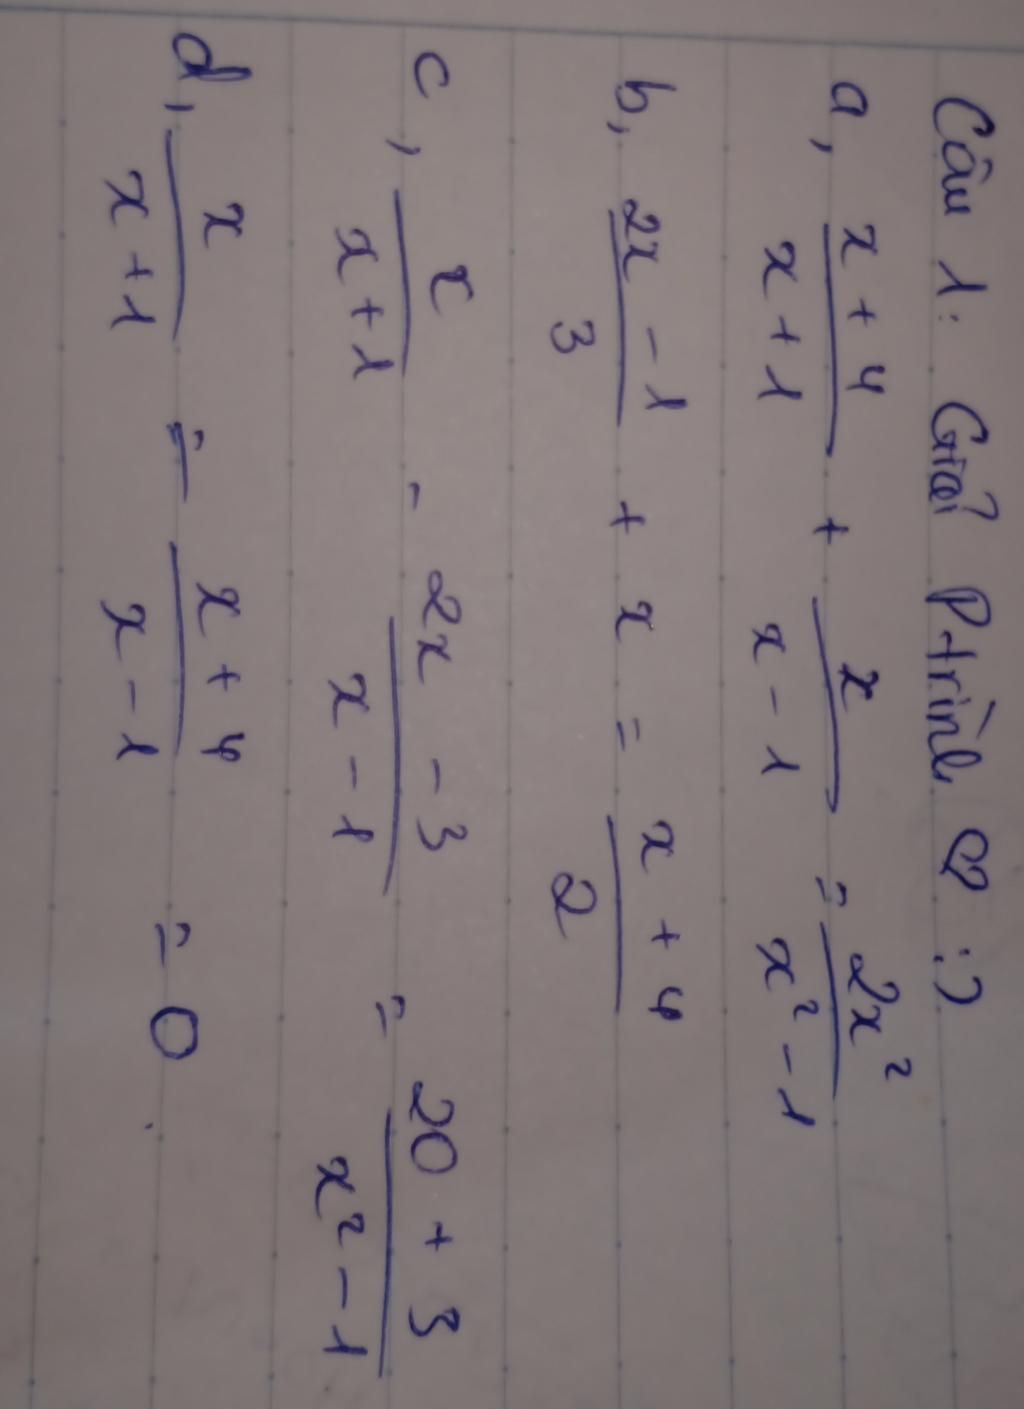 Câu 1: Giải Ptrình ♡ :)
a, (x + 4)/(x + 1) + x/(x - 1) = 2x²/(x² - 1)
b, (2x - 1)/3 + x = (x + 4)/2
c, x/(x + 1) - (2x - 3)/(x - 1) = (20 + 3)/(x² - 1)
d, x/(x + 1) = (x + 4)/(x - 1) = 0